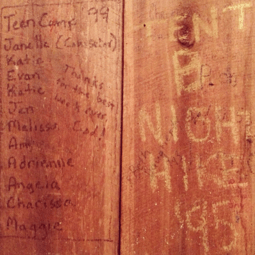 Teen Camp '99
Janelle (Counselor)
Katie
Evan
Katie
Jen
Melissa
Amy
Adrienne
Angela
Charissa
Maggie
Thanks
for the best
week ever
God!
TENT
B
NIGHT
HIKE
'95